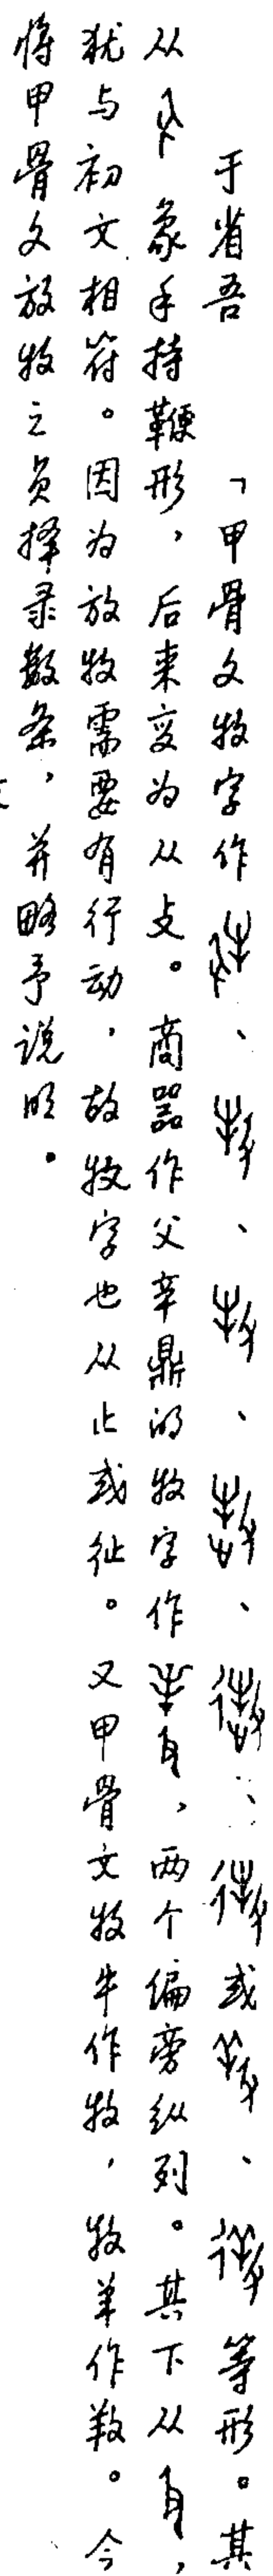 于省吾 「甲骨文牧字作、、、、、或、等形。其
从 象手持鞭形，后来变为从攴。商器作父辛鼎的牧字作，两个偏旁纵列。其下从，
犹与初文相符。因为放牧需要有行动，故牧字也从止或彳止。又甲骨文牧牛作牧，牧羊作䍩。今
将甲骨文放牧之贞择录数条，并略予说明。